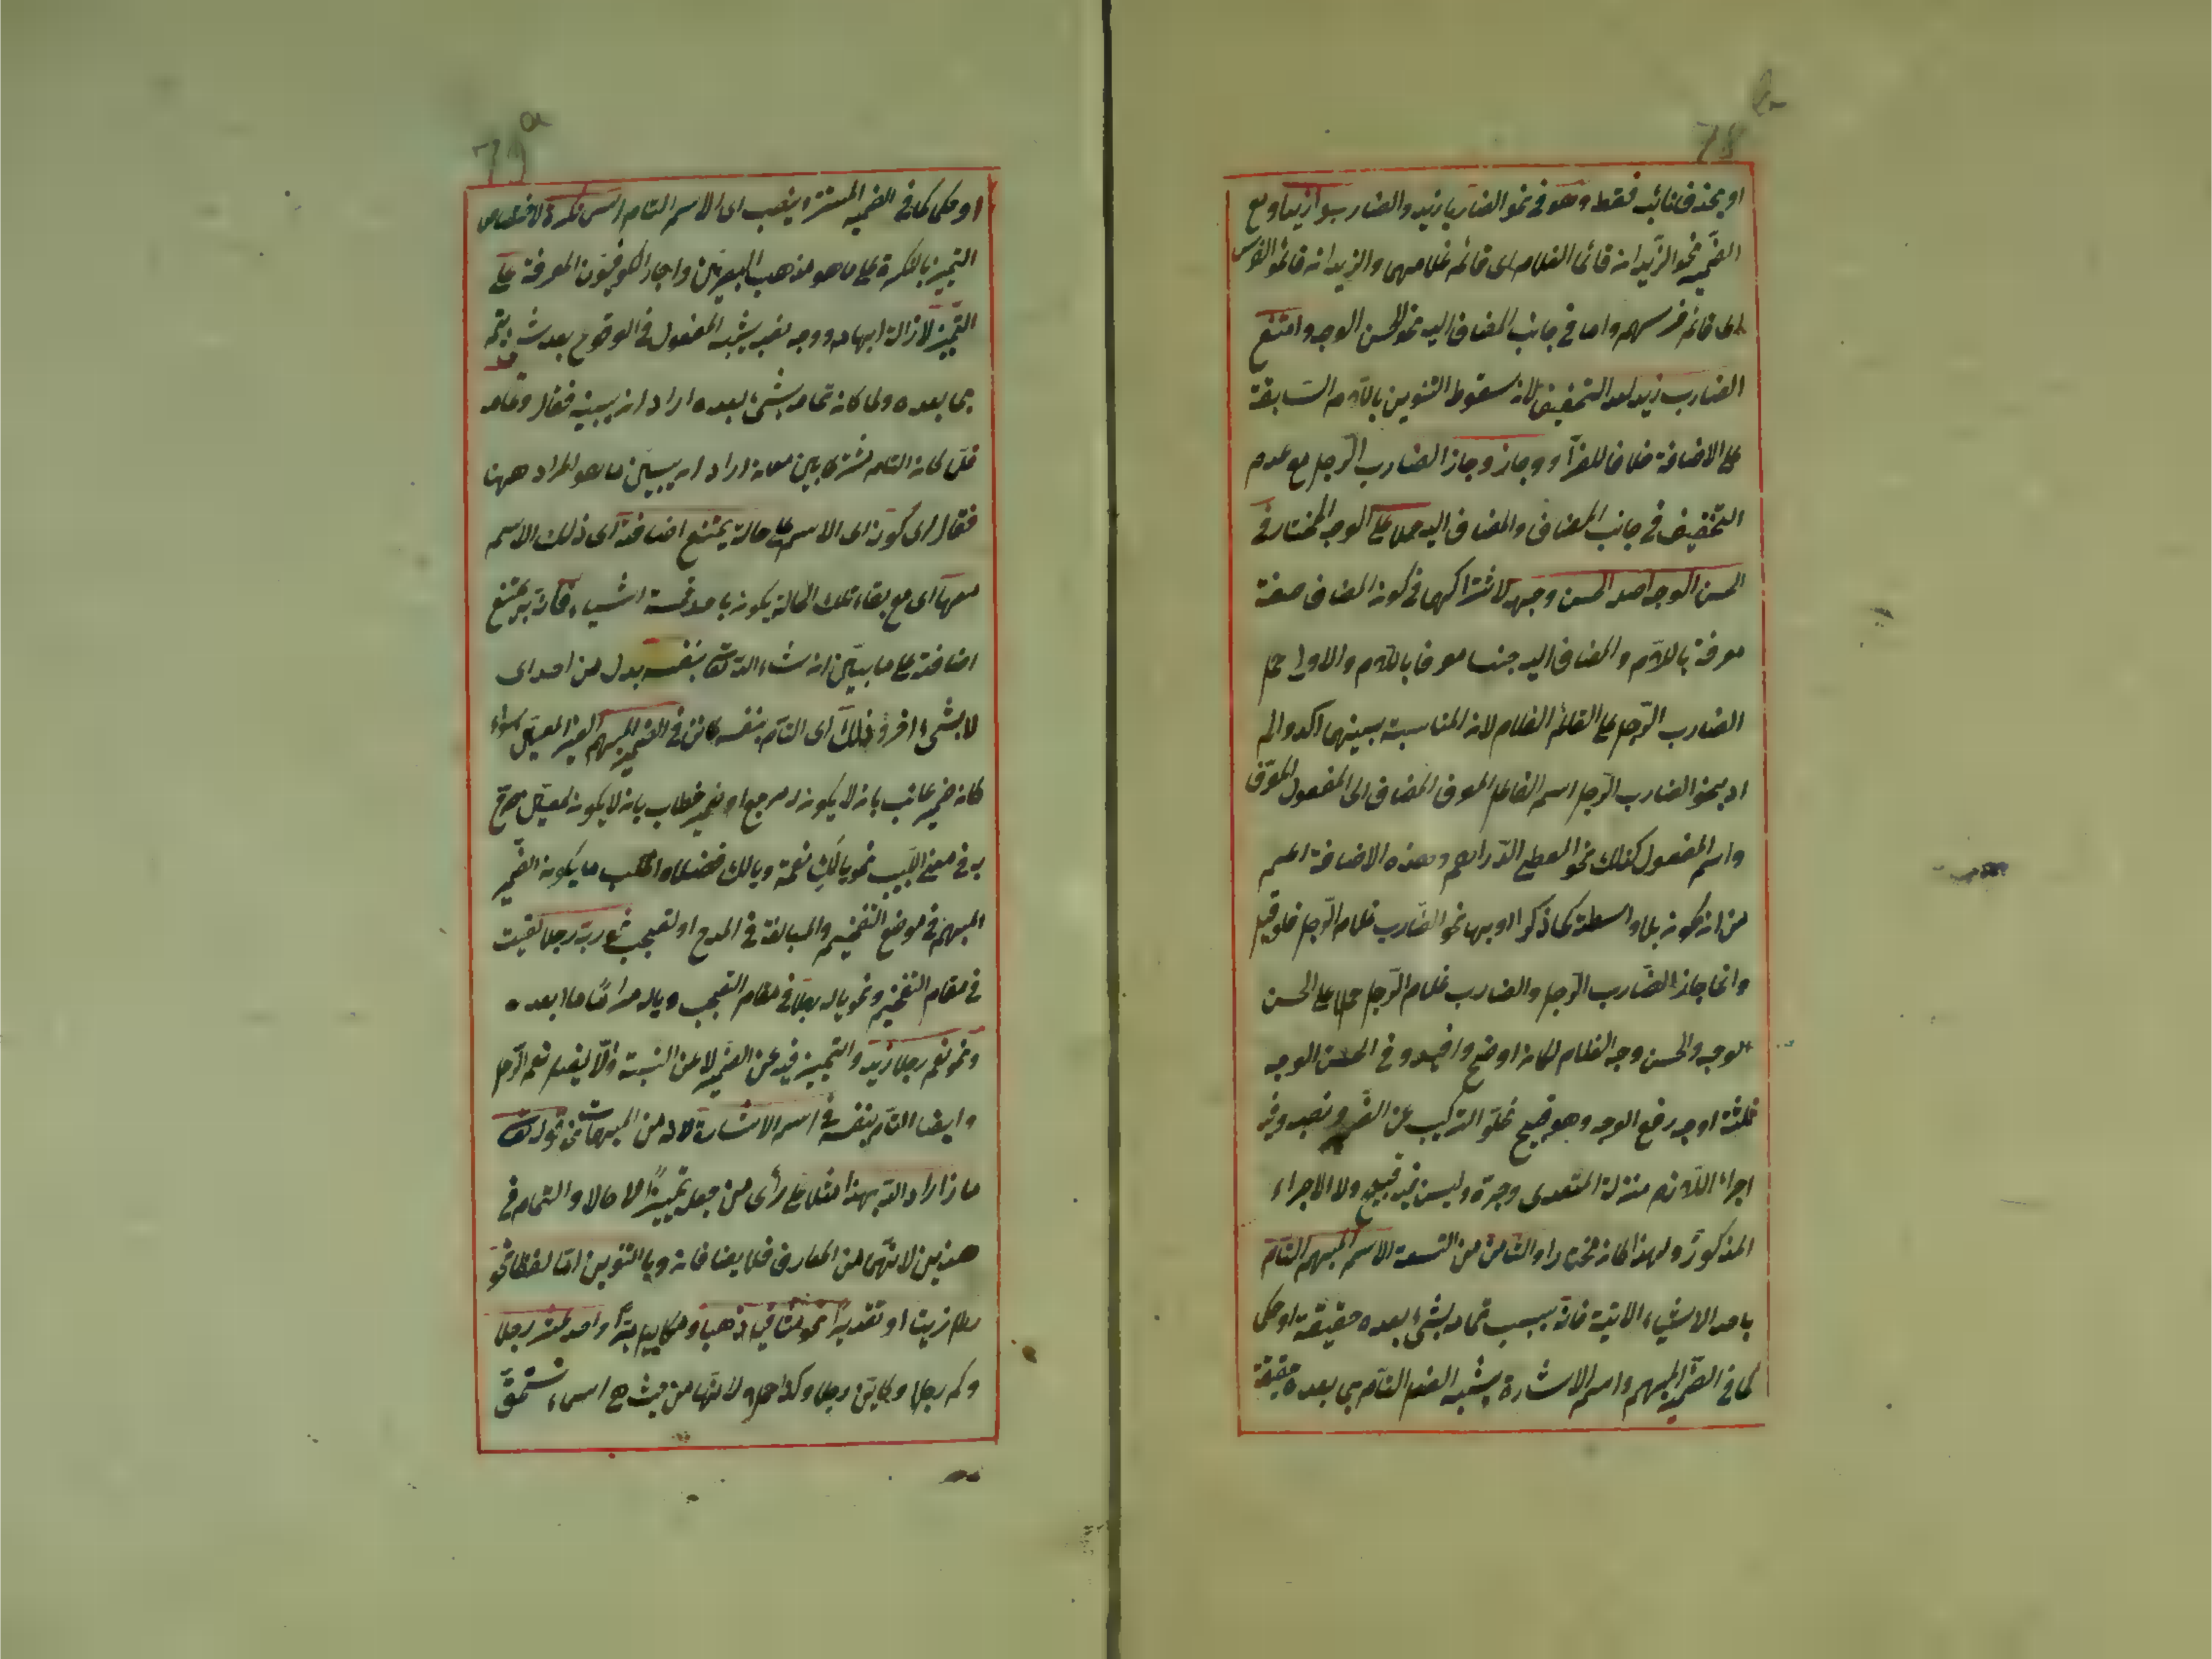 78 b
او بحذف نائبه فقط وهو في نحو الضاربا زيد والضاربوا زيد او مع
الضمير نحو الزيدان قائما الغلام اى قائم غلامهما والزيدان قائمو الفرس
اى قائم فرسهم واما في جانب المضاف اليه نحو الحسن الوجه وامتنع
الضارب زيد لعدم التخفيف لان سقوط التنوين باللام السابقة
على الاضافة خلافا للفرآء وجاز وجاز الضارب الرجل مع عدم
التخفيف في جانب المضاف والمضاف اليه حملا على الوجه المختار في
الحسن الوجه اصله الحسن وجهه لاشتراكهما في كون المضاف صفة
معرفة باللام والمضاف اليه جنسا معرفا باللام والاولى حمل
الضارب الرجل على القائم الغلام لان المناسبة بينهما اكد والمر
اد بنحو الضارب الرجل اسم الفاعل المعرف المضاف الى المفعول المعرف
واسم المفعول كذلك نحو المعطى الدراهم وهذه الاضافة اعم
من ان يكون بلا واسطة كما ذكر او بها نحو الضارب غلام الرجل فلو قيل
وانما جاز الضارب الرجل والضارب غلام الرجل حملا على الحسن
الوجه والحسن وجه الغلام لكان اوضح وافيد وفي الحسن الوجه
ثلثة اوجه رفع الوجه وهو قبيح لخلو التركيب عن الضمير ونصبه وفيه
اجراء اللازم منزلة المتعدى وجره وليس فيه قبح ولا الاجراء
المذكور ولهذا كان مختارا والثامن من التسعة الاسم المبهم التام
باحد الاشياء الاتية فانه بسبب تمامه بشئ بعده حقيقة او حكما
كما في الضمير المبهم واسم الاشارة يشبه الفعل التام بما بعده حقيقة
79 a
او حكما كما في الضمير المستتر وينصب اى الاسم التام اسم نكرة لاختصاص
التميز بالنكرة على ما هو مذهب البصريين واجاز الكوفيون المعرفة على
التميز لازالة ابهامه ووجه نصبه يشبه المفعول في الوقوع بعد شئ يتم
بما بعده ولما كان تمامه بشئ بعده اراد ان يبينه فقال وتمامه
فلما كان التمام مشتركا بين معان اراد ان يبين ما هو المراد ههنا
فقال اى كونه اى الاسم على حالة يمتنع اضافته اى ذلك الاسم
معها اى مع بقاء تلك الحالة يكون باحد خمسة اشياء فانه يمتنع
اضافته على ما بين ان شاء الله تعالى بنفسه بدل من احد اى
لا بشئ اخر وذلك اى التام بنفسه كائن في الضمير المبهم الغير المعين سواء
كان ضمير غائب بان لا يكون له مرجع او ضمير خطاب بان لا يكون لمعين صرح
به في مغنى اللبيب نحو يا لك نعمة ويا لك فضلا واغلب ما يكون الضمير
المبهم في موضع التفخيم والمبالغة في المدح او تعجب نحو ربه رجلا لقيت
في مقام التفخيم ونحو يا له رجلا في مقام التعجب ويا له مراقا ما ابعده
ونحو نعم رجلا زيد والتميز فيه عن الضمير لا عن النسبة والا يفهم نعم الرجل
وايضا التام بنفسه في اسم الاشارة لانه من المبهمات نحو قوله تعالى
ماذا اراد الله بهذا مثلا على رأى من جعله تميزا لا حالا والتمام في
هذين لانهما من المعارف فلا يضافان وبالتنوين اما لفظا نحو
رطل زيتا او تقديرا نحو مثاقيل ذهبا ومكاييل برا واحد عشر رجلا
وكم رجلا وكاين رجلا وكذا رجلا لانها من حيث هى اسماء تستحق